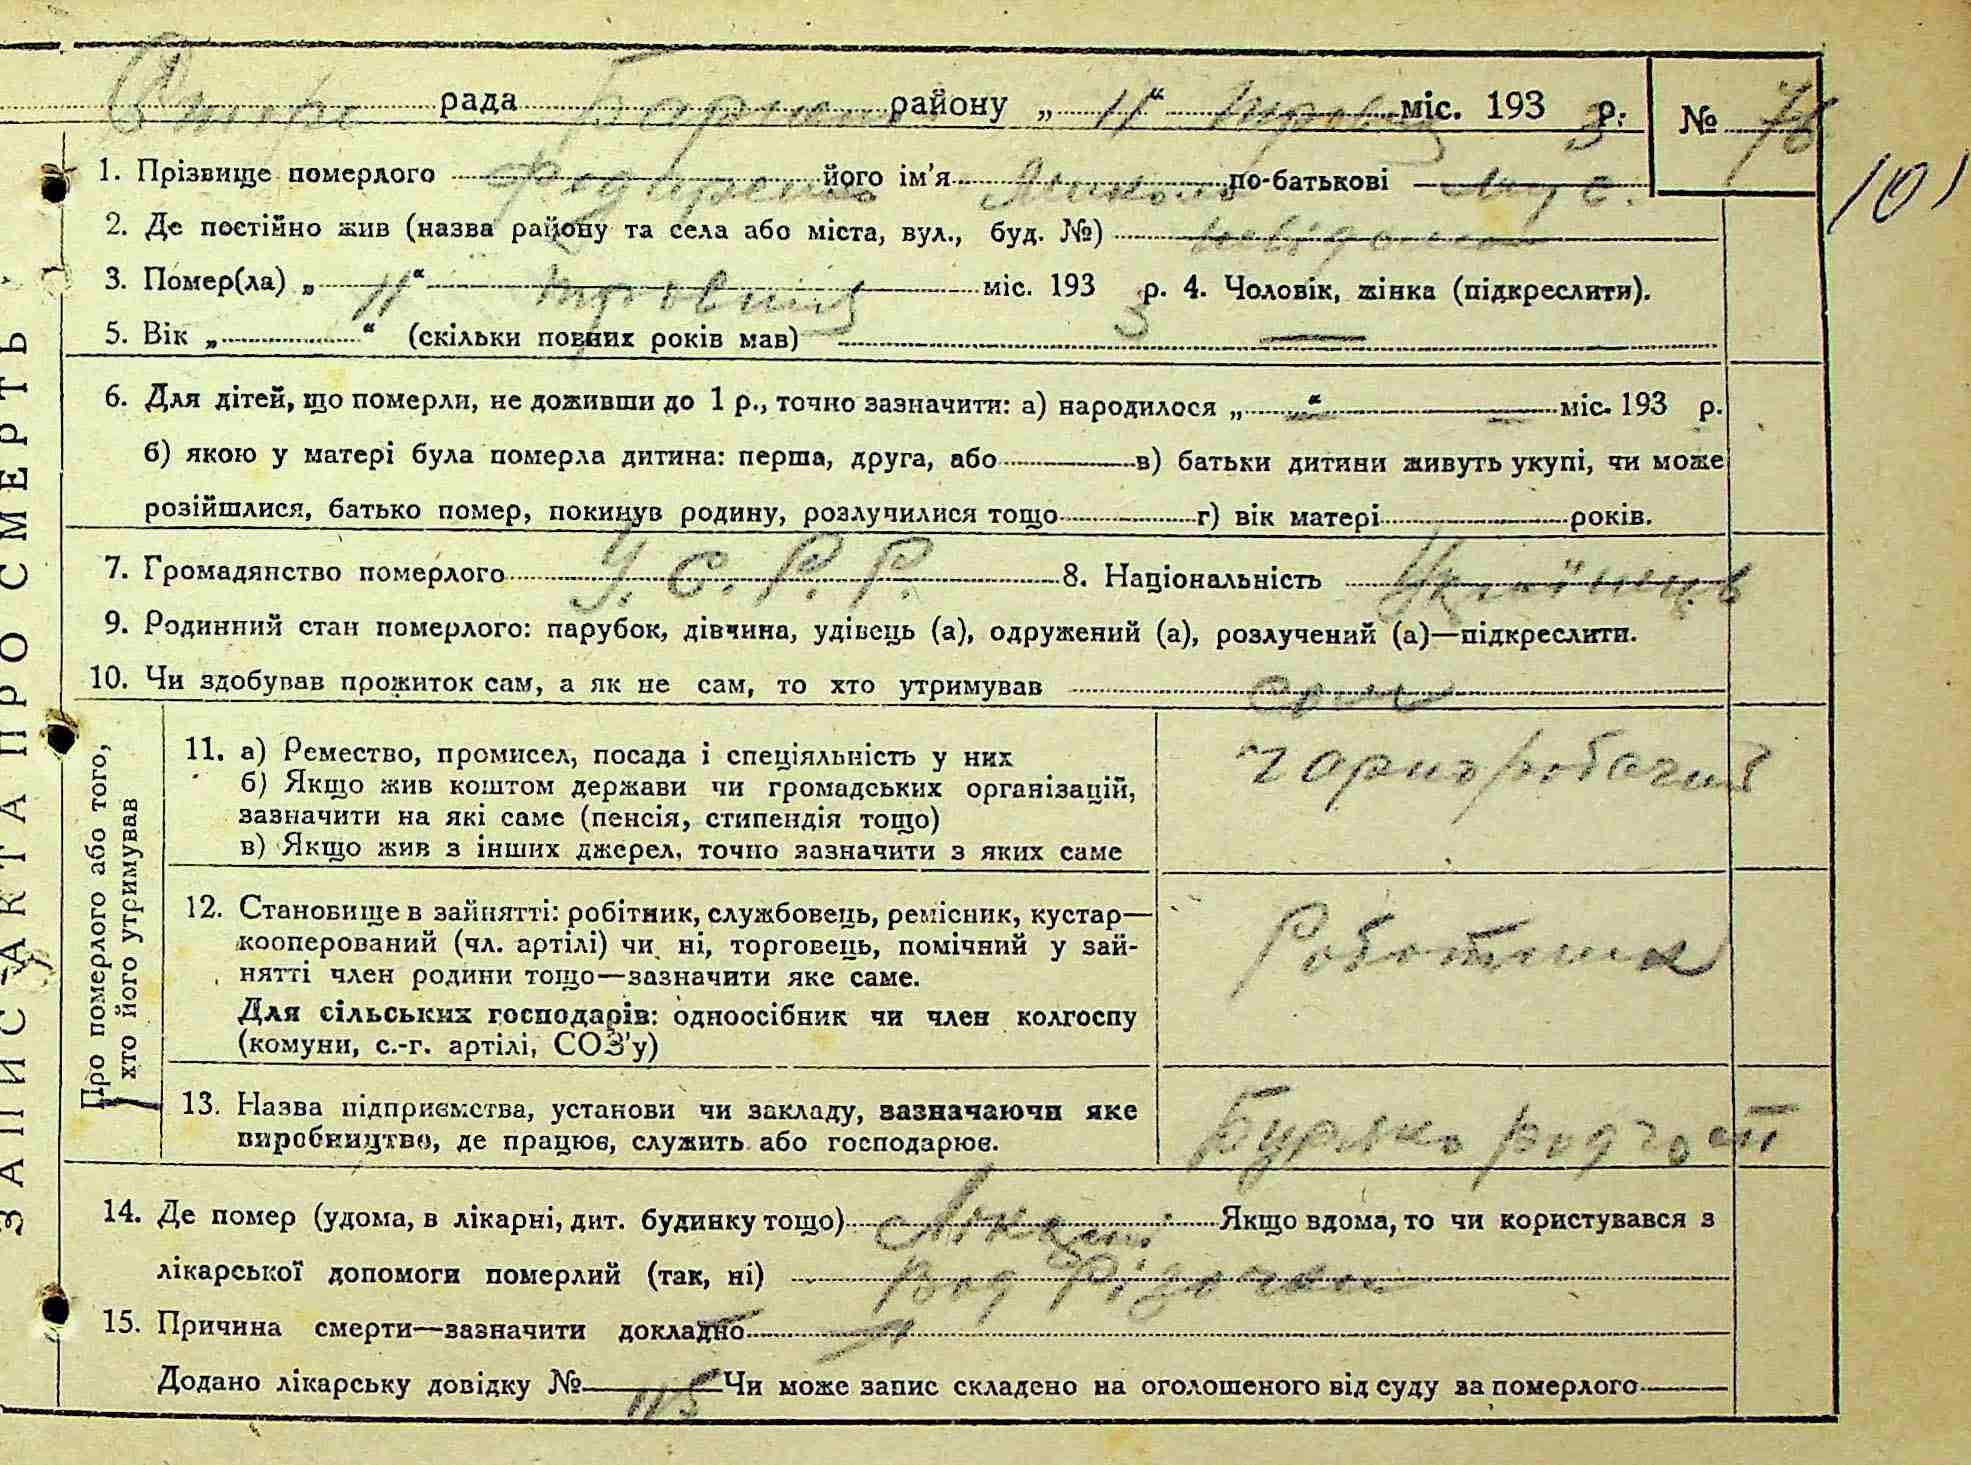 рада Бариш району „ 11 “ травня міс. 193 3 р. № 76
101
1. Прізвище померлого його ім'я Микола по-батькові
2. Де постійно жив (назва району та села або міста, вул., буд. №) невідомо
3. Помер(ла) „ 11 “ травня міс. 193 3 р. 4. Чоловік, жінка (підкреслити).
5. Вік „ “ (скільки повних років мав) —
6. Для дітей, що померли, не доживши до 1 р., точно зазначити: а) народилося „ — “ — міс. 193 р.
б) якою у матері була померла дитина: перша, друга, або в) батьки дитини живуть укупі, чи може
розійшлися, батько помер, покинув родину, розлучилися тощо г) вік матері років.
7. Громадянство померлого У. С. Р. Р. 8. Національність Українець
9. Родинний стан померлого: парубок, дівчина, удівець (а), одружений (а), розлучений (а)—підкреслити.
10. Чи здобував прожиток сам, а як не сам, то хто утримував сам
ЗАПИС-АКТА ПРО СМЕРТЬ
Про померлого або того, хто його утримував
11. а) Ремество, промисел, посада і спеціяльність у них
б) Якщо жив коштом держави чи громадських організацій,
зазначити на які саме (пенсія, стипендія тощо)
в) Якщо жив з інших джерел, точно зазначити з яких саме
чорноробочий
12. Становище в зайнятті: робітник, службовець, ремісник, кустар—
кооперований (чл. артілі) чи ні, торговець, помічний у зай-
нятті член родини тощо—зазначити яке саме.
Для сільських господарів: одноосібник чи член колгоспу
(комуни, с.-г. артілі, СОЗ'у)
Роботник
13. Назва підприємства, установи чи закладу, зазначаючи яке
виробництво, де працює, служить або господарює.
Буряко
14. Де помер (удома, в лікарні, дит. будинку тощо) Лікарні Якщо вдома, то чи користувався з
лікарської допомоги померлий (так, ні)
15. Причина смерти—зазначити докладно
Додано лікарську довідку № 115 Чи може запис складено на оголошеного від суду за померлого